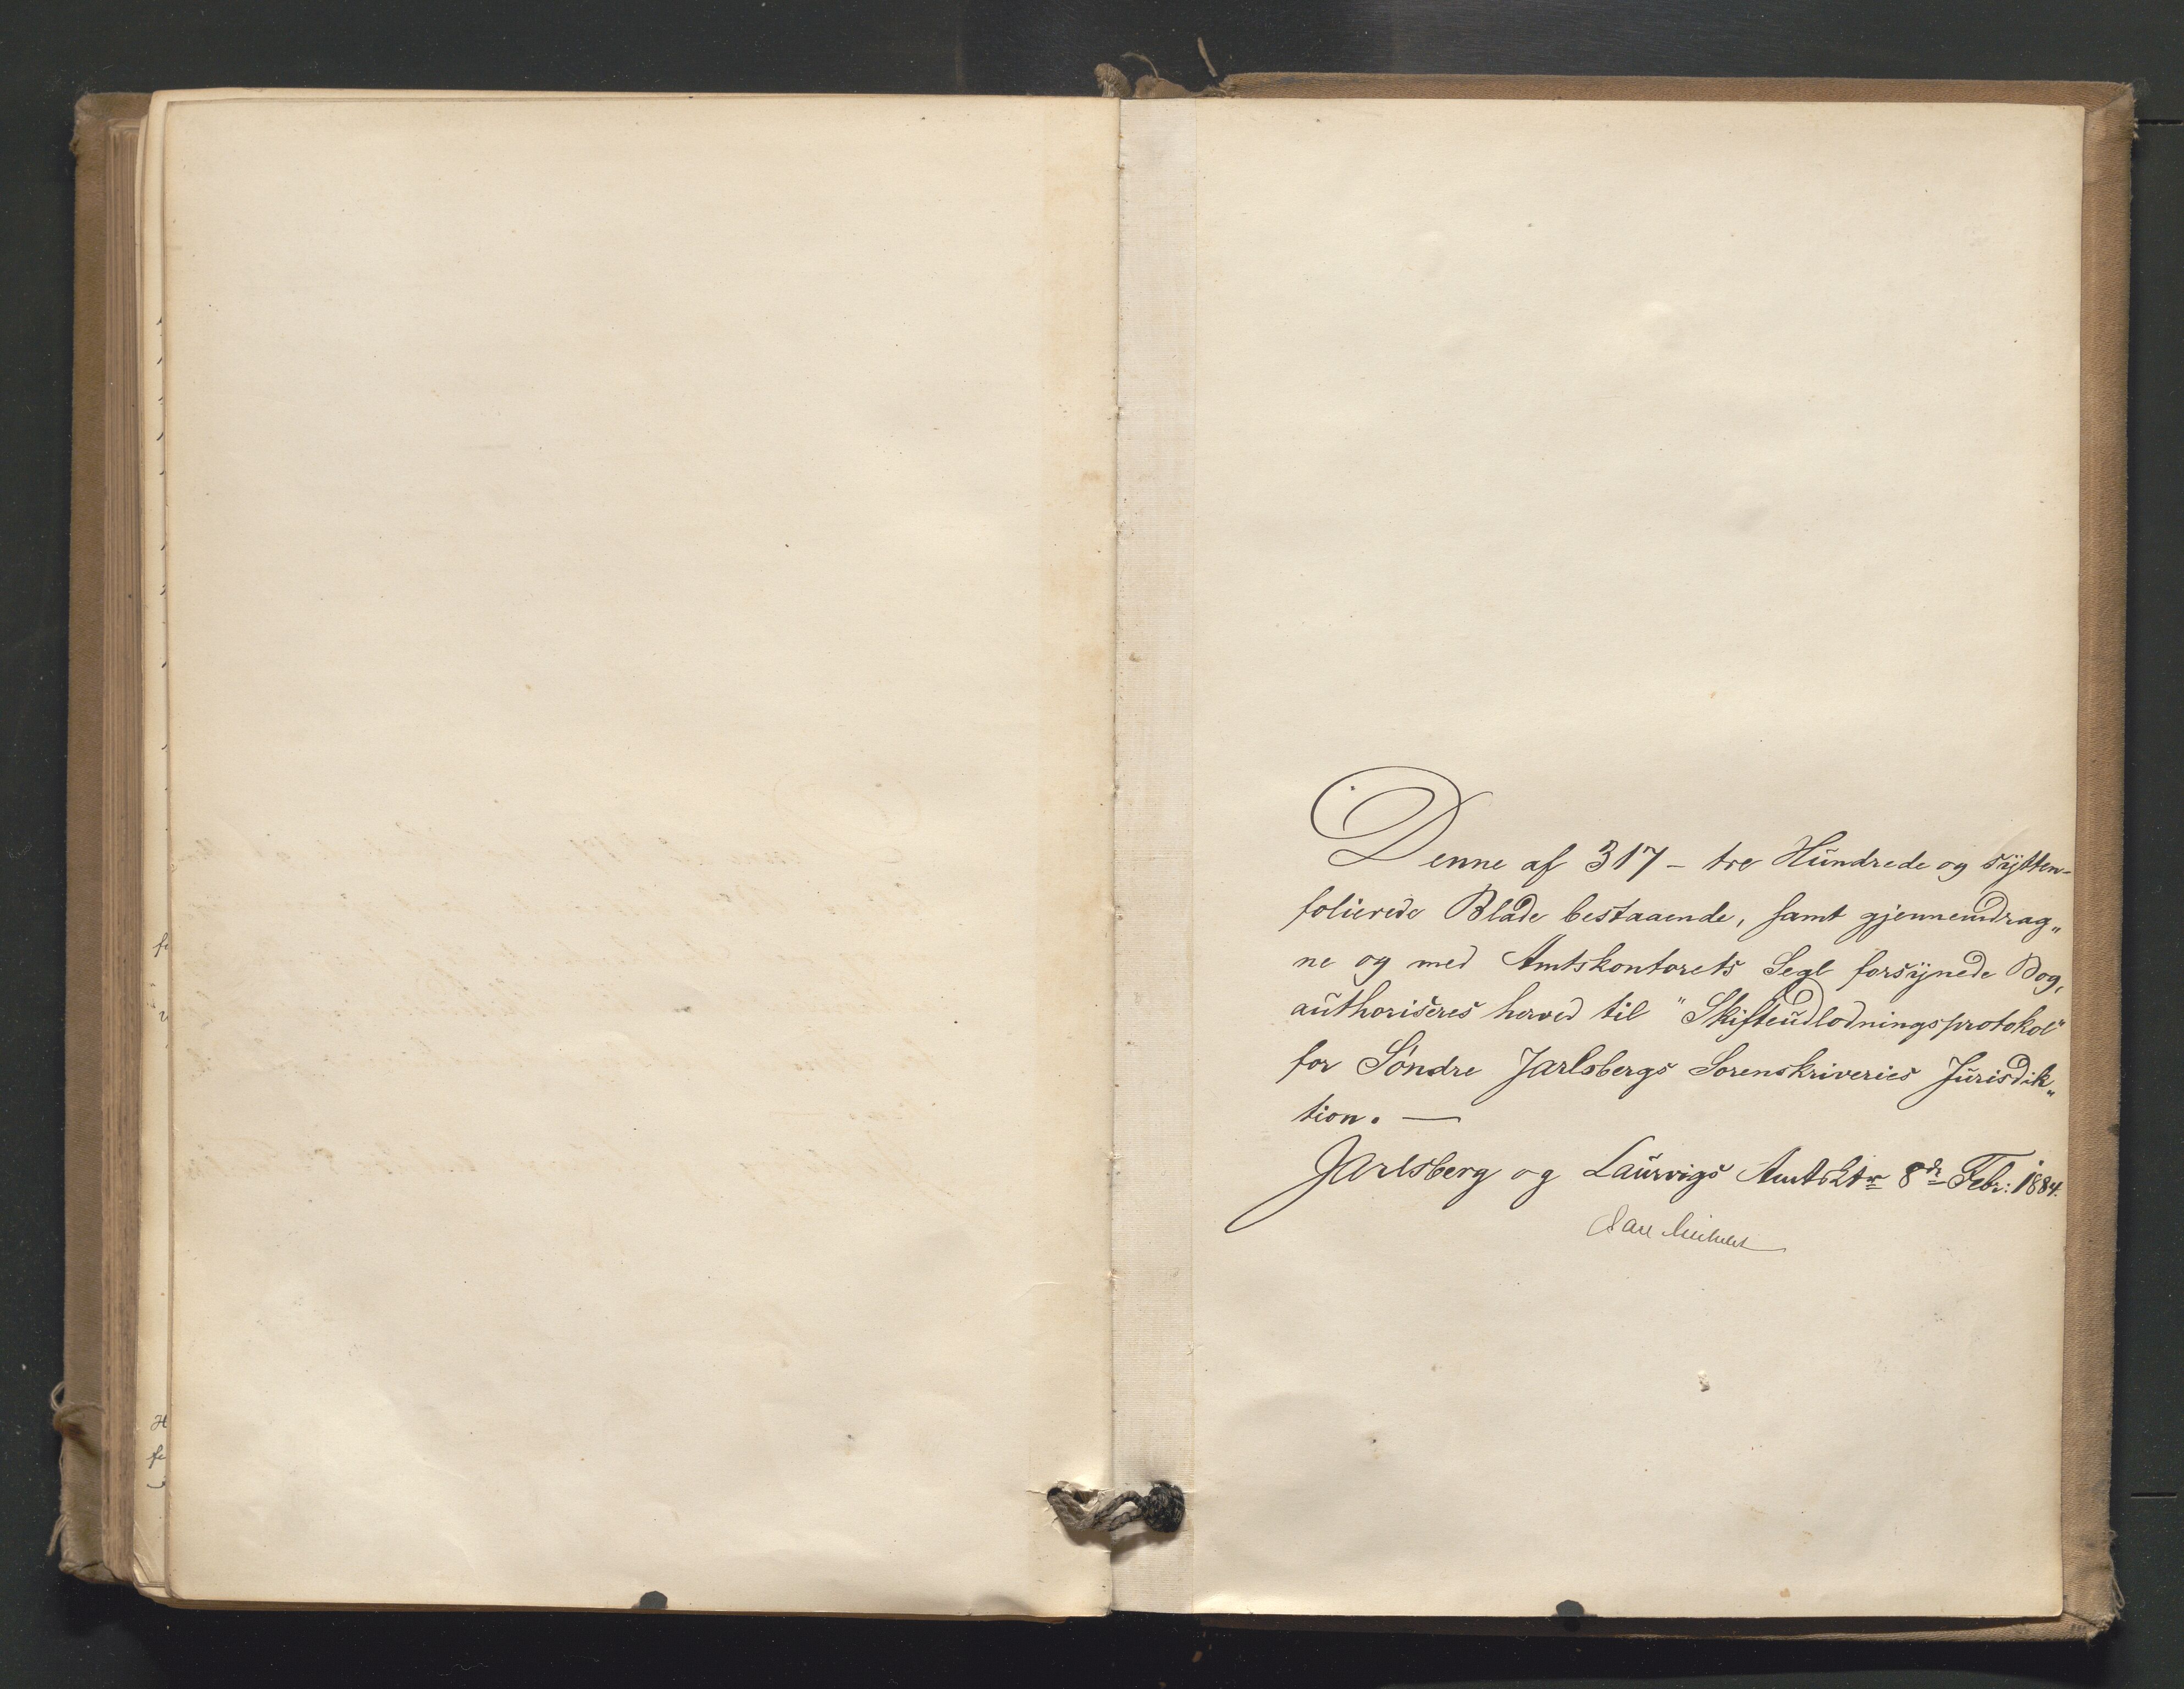 Denne af 317 – tre Hundrede og sytten–
folierede Blade bestaaende, samt gjennemdrag„
ne og med Amtskontorets Segl forsynede Bog,
authoriseres herved til "Skifteudlodningsprotokol"
for Söndre Jarlsbergs Sorenskriveries Jurisdik„
tion. —
Jarlsberg og Laurvigs Amtsktr 8de Febr: 1884.